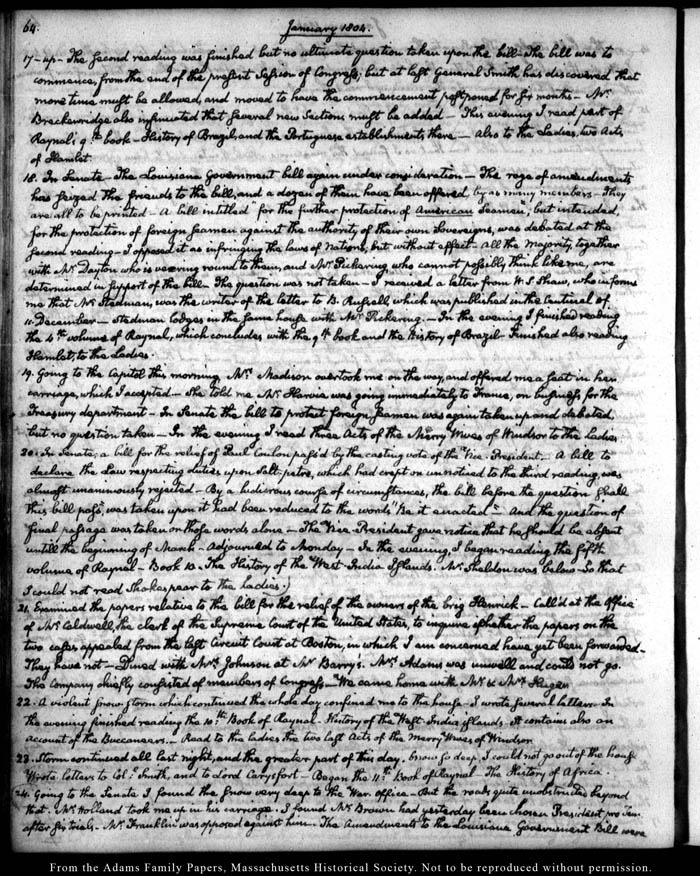 64.
January 1804.
17 - up - The second reading was finished but no ultimate question taken upon the bill - The bill was to
commence, from the end of the present Session of Congress; but at last General Smith has discovered that
more time must be allowed, and moved to have the commencement postponed for six months - Mr.
Breckenridge also insinuated that several new Sections must be added - This evening I read part of
Raynal's 9th book - History of Brazil, and the Portuguese establishments there - Also to the Ladies, two Acts
of Hamlet.
18. In Senate - The Louisiana Government bill again under consideration - The rage of amendments
has seized the friends to the bill, and a dozen of them have been offered by as many members - They
are all to be printed - A bill intitled "for the further protection of American Seamen", but intended
for the protection of foreign seamen against the authority of their own Sovereigns, was debated at the
second reading - I opposed it as infringing the laws of Nations, but without effect - All the Majority, together
with Mr. Dayton who is veering round to them, and Mr. Pickering who cannot possibly think like me, are
determined in support of the bill - The question was not taken - I received a letter from W. S. Shaw, who informs
me that Mr. Stedman, was the writer of the letter to B. Russell, which was published in the Centinel of
11. December - Stedman lodges in the same house with Mr. Pickering. - In the evening I finished reading
the 4th volume of Raynal, which concludes with the 9th book and the History of Brazil - Finished also reading
Hamlet, to the Ladies.
19. Going to the Capitol this morning, Mrs. Madison overtook me on the way, and offered me a seat in her
carriage, which I accepted - She told me Mr. Harvie was going immediately to France, on business for the
Treasury department - In Senate the bill to protect foreign seamen was again taken up and debated,
but no question taken - In the evening I read three Acts of the Merry Wives of Windsor to the Ladies
20. In Senate, a bill for the relief of Paul Coulon passed by the casting vote of the Vice-President. - A bill to
declare the Law respecting duties upon Salt-petre, which had crept on unnoticed to the third reading, was
almost unanimously rejected - By a ludicrous course of circumstances, the bill before the question shall
this bill pass, was taken upon it had been reduced to the words "Be it enacted" - And the question of
final passage was taken on those words alone - The Vice-President gave notice that he should be absent
untill the beginning of March - Adjourned to Monday - In the evening, I began reading the fifth
volume of Raynal - Book 10. The History of the West-India Islands. Mr. Sheldon was below - So that
I could not read Shakespear to the Ladies.)
21. Examined the papers relative to the bill for the relief of the owners of the brig Henrick - Call'd at the Office
of Mr. Caldwell, the clerk of the Supreme Court of the United States, to inquire whether the papers on the
two cases appealed from the last Circuit Court at Boston, in which I am concerned have yet been forwarded -
They have not - Dined with Mrs. Johnson at Mr. Barry's. Mrs. Adams was unwell and could not go.
The Company chiefly consisted of members of Congress - We came home with Mr. & Mrs. Huger
22. A violent snow-storm which continued the whole day confined me to the house - I wrote several letters. In
the evening finished reading the 10th Book of Raynal - History of the West India islands. It contains also an
account of the Buccaneers. - Read to the Ladies the two last Acts of the Merry Wives of Windsor
23. Storm continued all last night, and the greater part of this day. Snow so deep, I could not go out of the house
Wrote letters to Col. Smith, and to Lord Carysfort - Began the 11th Book of Raynal - The History of Africa.
24. Going to the Senate I found the snow very deep to the War-office - But the roads quite unobstructed beyond
that. Mr. Holland took me up in his carriage. I found Mr. Brown had yesterday been chosen President pro Tem.
after six trials - Mr. Franklin was opposed against him. The Amendments to the Louisiana Government Bill were
From the Adams Family Papers, Massachusetts Historical Society. Not to be reproduced without permission.